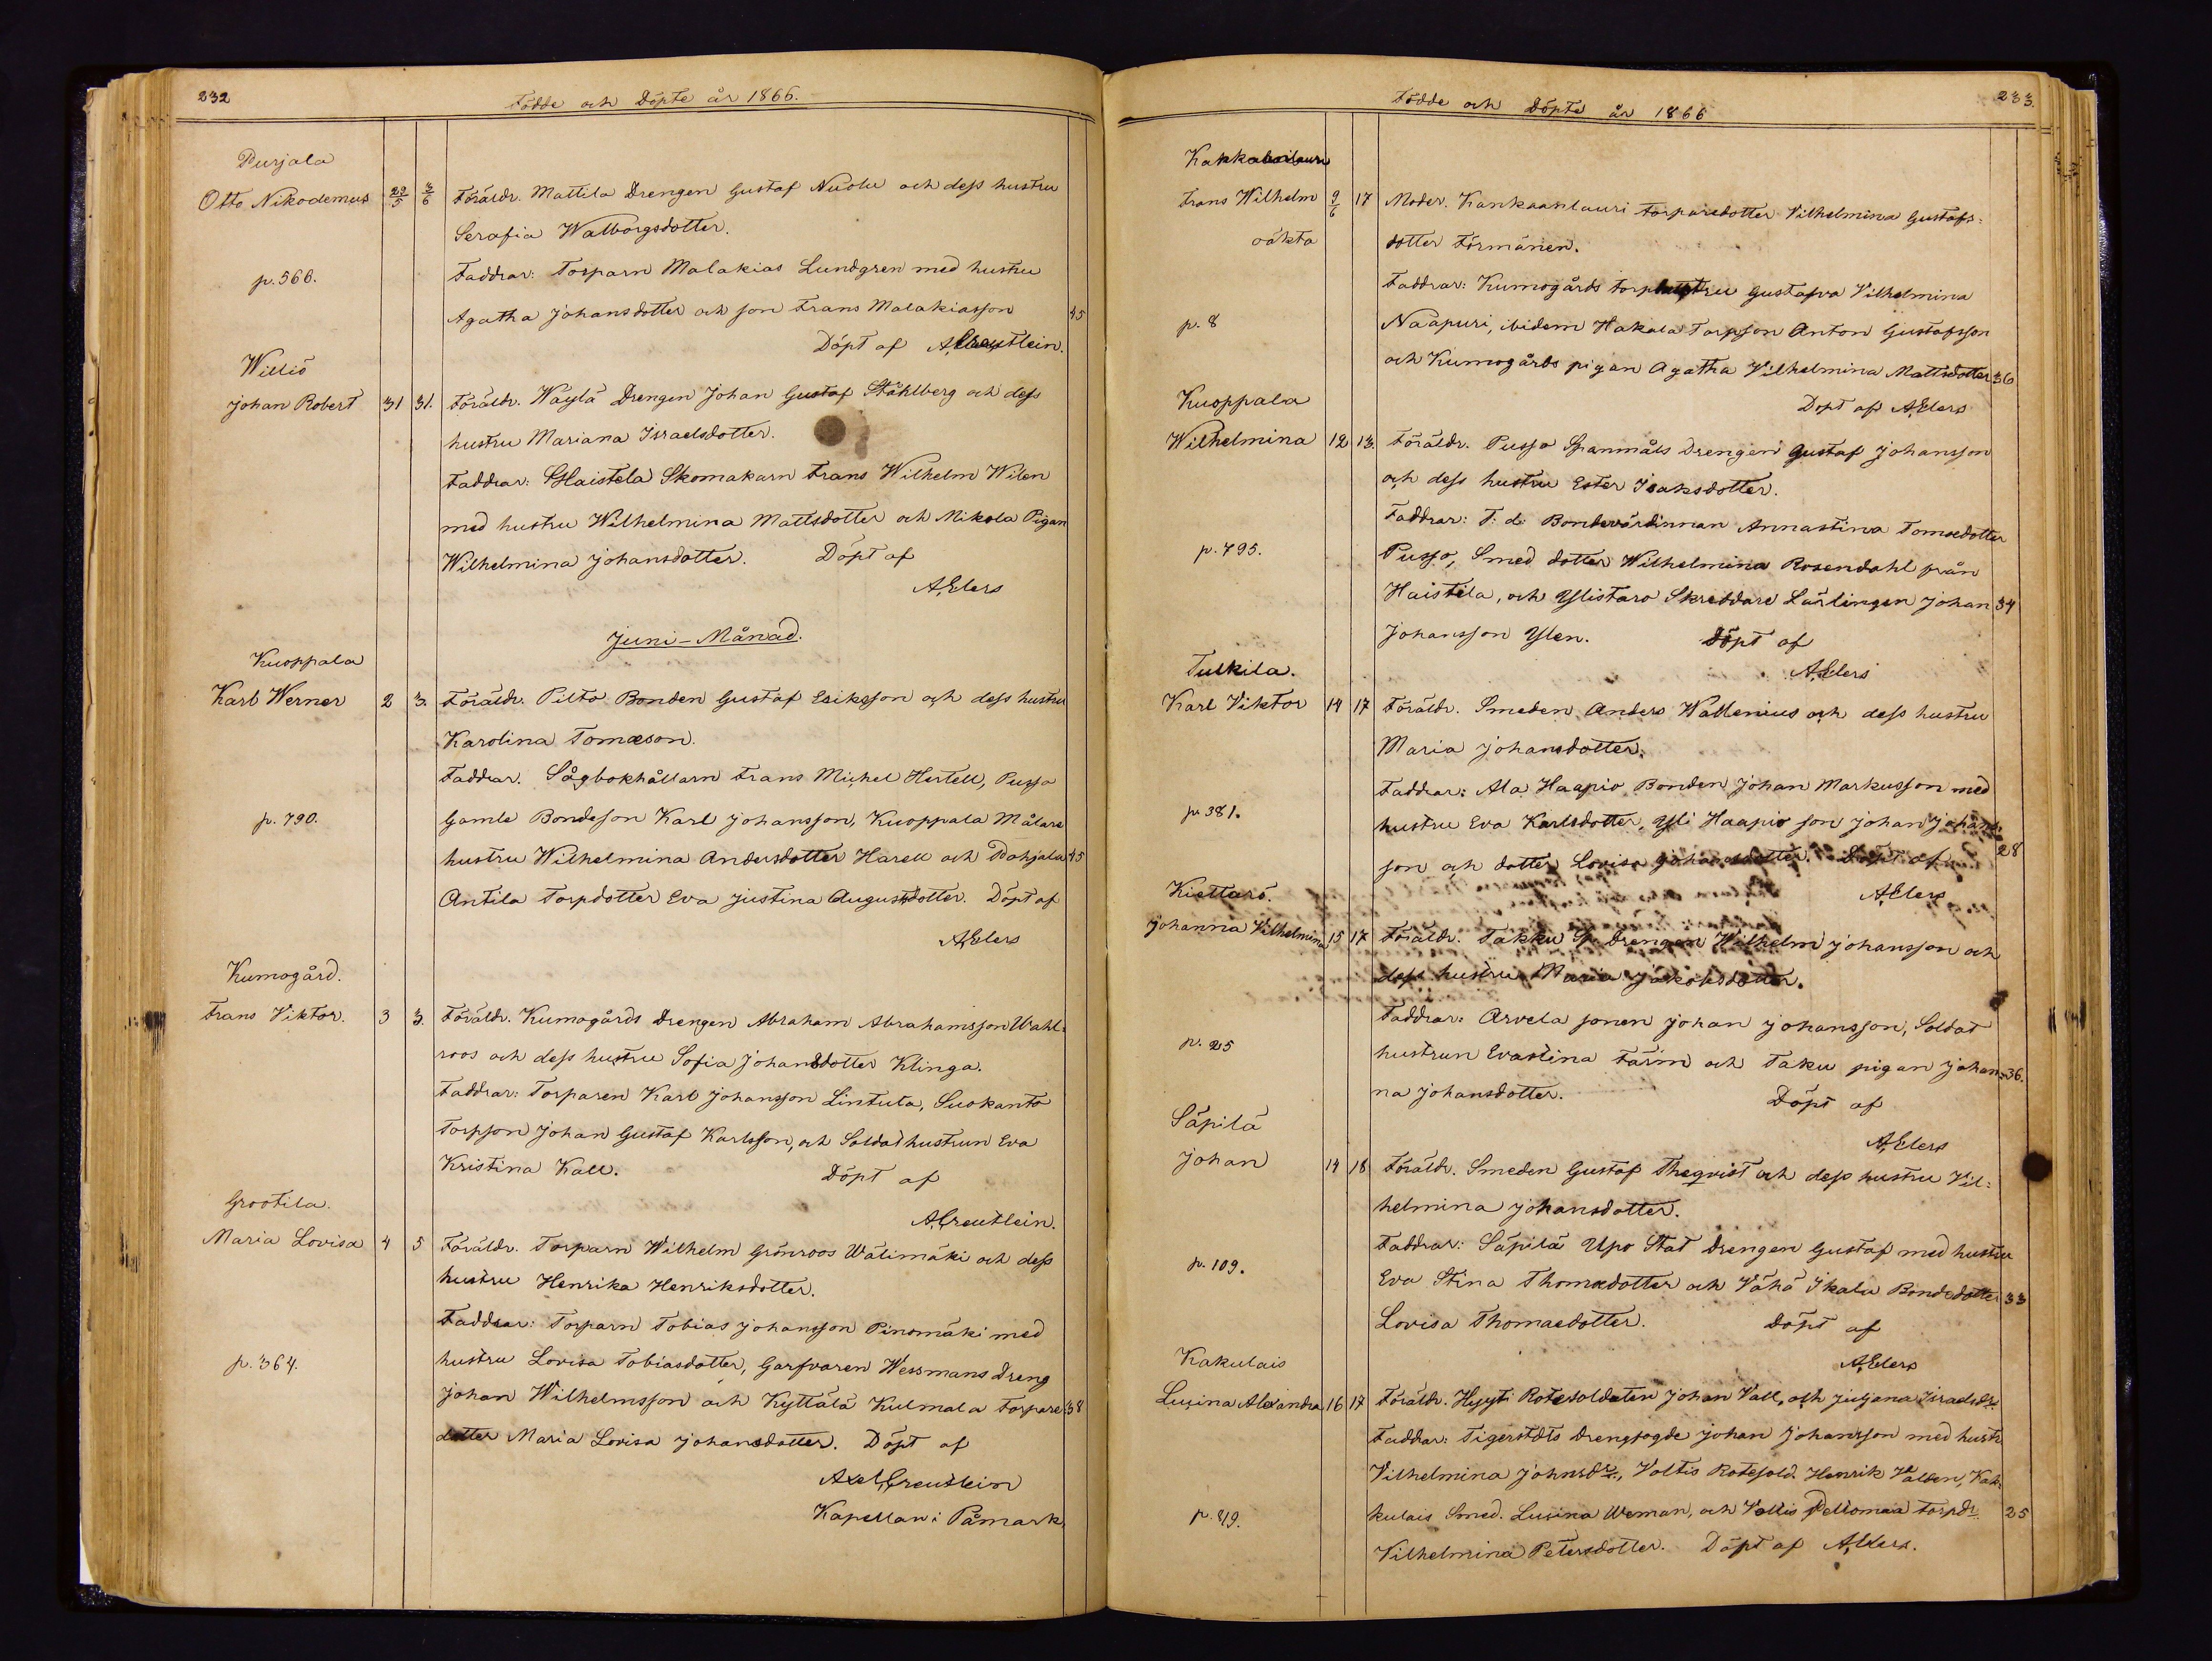 232
Födde och Döpte år 1866.
Purjala
Otto Nikodemus 29/5 3/6 Föräldr. Mattila Drengen Gustaf Nuolu och dess hustru
Serafia Walborgsdotter.
p. 566. Faddrar: Torparn Malakias Lundgren med hustru
Agatha Johansdotter och son Frans Malakiasson 45
Döpt af A, Creutlein.
Williö
Johan Robert 31 31. Föräldr. Wäylä Drengen Johan Gustaf Ståhlberg och dess
hustru Mariana Israelsdotter.
Faddrar: Haistela Skomakarn Frans Wilhelm Wilen
med hustru Wilhelmina Mattsdotter och Mikola Pigan
Wilhelmina Johansdotter. Döpt af
A, Elers
Juni-Månad.
Kuoppala
Karl Werner 2 3. Föräldr. Pilto Bonden Gustaf Eriksson och dess hustru
Karolina Tomæson.
Faddrar. Sågbokhållarn Frans Michel Hertell, Pusso
p. 790. Gamle Bondeson Karl Johansson, Kuoppala Målare
hustru Wilhelmina Andersdotter Harell och Pohjala 45
Antila Torpdotter Eva Justina Augustdotter. Döpt af
A, Elers
Kumogård.
Frans Viktor. 3 3. Föräldr. Kumogårds Drengen Abraham Abrahamsson Wahl-
roos och dess hustru Sofia Johansdotter Klinga.
Faddrar: Torparen Karl Johansson Lintula, Suokanto
Torpson Johan Gustaf Karlsson, och Soldathustrun Eva
Kristina Kall. Döpt af
A, Creutlein.
Grootila.
Maria Lovisa 4 5 Föräldr. Torparn Wilhelm Grönroos Wälimäki och dess
hustru Henrika Henriksdotter.
Faddrar: Torparn Tobias Johansson Pinomäki med
p. 364. hustru Lovisa Tobiasdotter, Garfvaren Wessmans Dreng
Johan Wilhelmsson och Kyttälä Kulmala Torpare 38
dotter Maria Lovisa Johansdotter. Döpt af
Axel Creutlein
Kapellan i Påmark.
233.
Födde och Döpte år 1866
Frans Wilhelm 9/6 17 Moder. Kankaanlauri Torparedotter Vilhelmina Gustafs-
oäkta dotter Förmänen.
Faddrar: Kumogårds Gustafva Vilhelmina
p. 8 Naapuri, ibidem Hakala Torpson Anton Gustafsson
och Kumogårds pigan Agatha Vilhelmina Mattsdotter 36
Döpt af A, Elers
Kuoppala
Wilhelmina 12 13. Föräldr. Pusso Spanmåls Drengen Gustaf Johansson
och dess hustru Ester Isaksdotter.
Faddrar: F: d: Bondevärdinnan Annastina Tomædotter
p. 795. Pusso, Smed dotter Wilhelmina Rosendahl från
Haistila, och Ylistaro Skreddare Lärlingen Johan 34
Johansson Ylen. Döpt af
A, Elers
Tulkila.
Karl Viktor 14 17 Föräldr. Smeden Anders Wallenius och dess hustru
Maria Johansdotter.
Faddrar: Ala Haapio Bonden Johan Markusson med
p. 381. hustru Eva Karlsdotter, Yli Haapio son Johan Johans-
son och dotter Lovisa Johansdotter. Döpt af 28
A, Elers
Kiettarö.
Johanna Vilhelmina 15 17 Föräldr. Takku Sp. Drengen Wilhelm Johansson och
dess hustru Maria Jakobsdotter.
Faddrar: Arvela sonen Johan Johansson, Soldat
p. 25 hustrun Evastina Färm och Taku pigan Johan- 36.
na Johansdotter. Döpt af
A, Elers
Säpilä
Johan 14 18 Föräldr. Smeden Gustaf Theqvist och dess hustru Vil-
helmina Johansdotter.
Faddrar: Säpilä Upo Stat Drengen Gustaf med hustru
p. 109. Eva Stina Thomædotter och Vähä Ikala Bondedotter 33
Lovisa Thomaedotter. Döpt af
A, Elers
Kakulais
Lusina Alexandra 16 17 Föräldr. Hyyti Rotesoldaten Johan Vall, och Juljana Israelsdr.
Faddrar: Tigerstdts Drengfogde Johan Johansson med hustr
Vilhelmina Johnsdr., Voltis Rotesold. Henrik Valben, Kak-
p. 49. kulais Smed. Lusina Weman, och Voltis Peltomaa Torpdr. 25
Vilhelmina Petersdotter. Döpt af A, Elers.